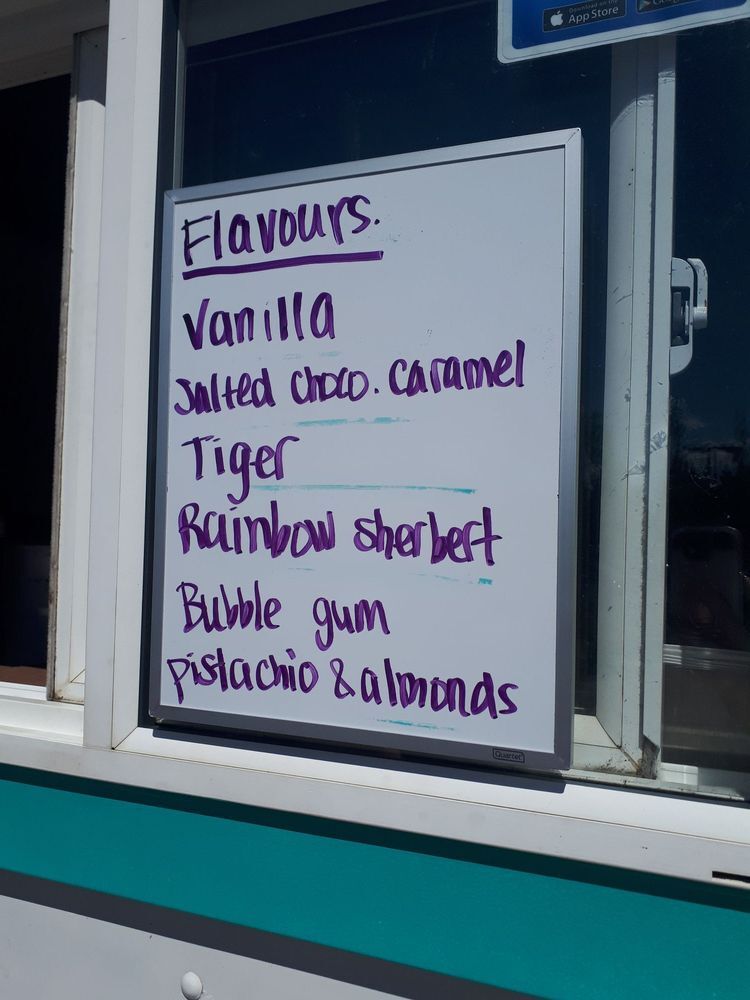 Download on the
App Store
Flavours.
Vanilla
Salted choco. caramel
Tiger
Rainbow sherbert
Bubble gum
pistachio & almonds
Quartet